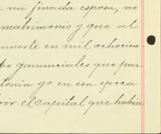 mi finada esposa, no
matrimonio y que al
muerte en mil ochocien
gananciales que
tenia yo en esa epoca
el Capital que habia